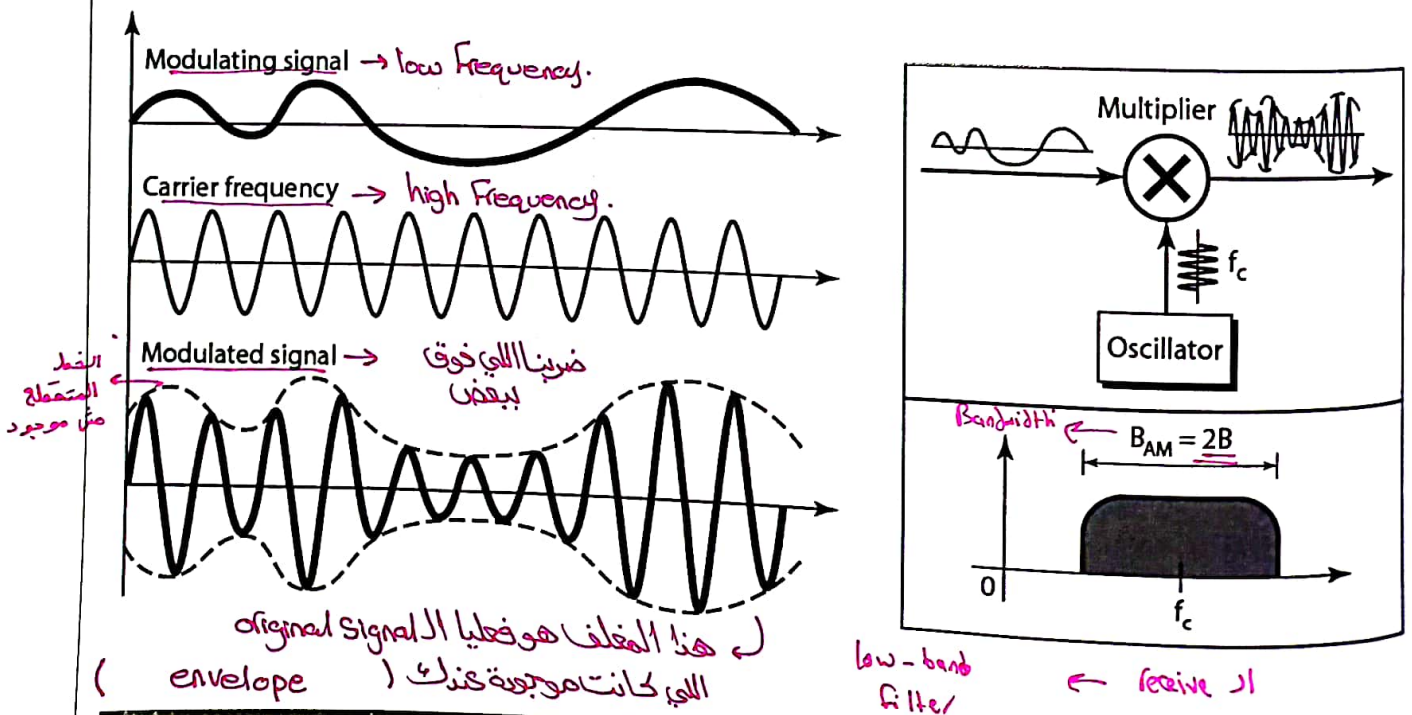 Modulating signal → low Frequency.
Carrier frequency → high Frequency.
Modulated signal → ضربنا اللي فوق
ببعض
الخط
المتقطع
مش موجود
هذا المغلف هو فعليا الـ original signal
اللي كانت موجودة عندك ( envelope )
Multiplier
fc
Oscillator
Bandwidth ← BAM = 2B
0
fc
الـ receive ← low-band
filter